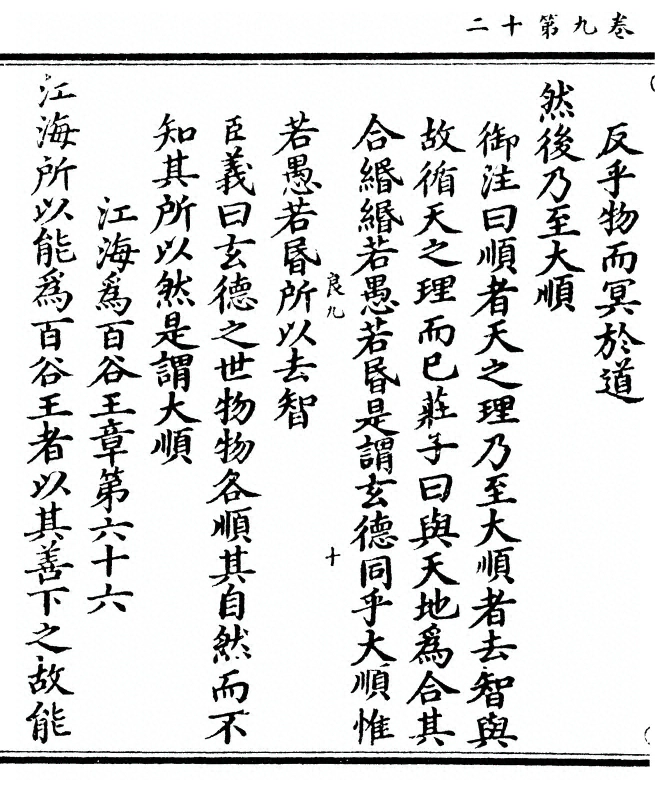 二十第九卷
反乎物而冥於道
然後乃至大順
御注曰順者天之理乃至大順者去智與
故循天之理而已莊子曰與天地爲合其
合緡緡若愚若昬是謂玄德同乎大順惟
良九
十
若愚若昬所以去智
臣義曰玄德之世物物各順其自然而不
知其所以然是謂大順
江海爲百谷王章第六十六
江海所以能爲百谷王者以其善下之故能